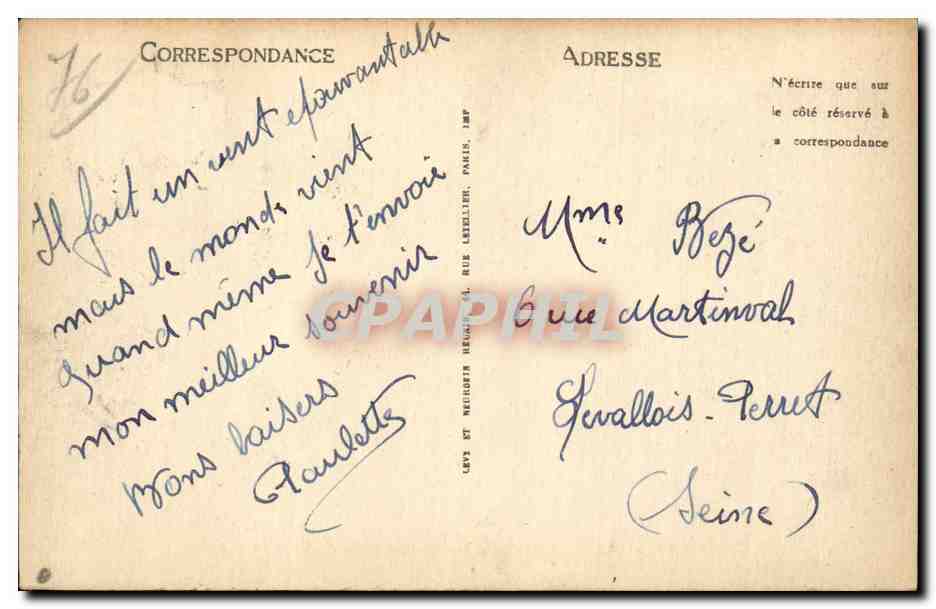 76
CORRESPONDANCE
Il fait un vent épouvantable
mais le monde vient
quand même je t'envoie
mon meilleur souvenir
Bons baisers
Paulette
LEVY ET NEURDEIN REUNIS, 44, RUE LETELLIER, PARIS, IMP
ADRESSE
N'écrire que sur
le côté réservé à
a correspondance
Mme Bezé
6 rue Martinval
Levallois-Perret
(Seine)
CPAPHIL